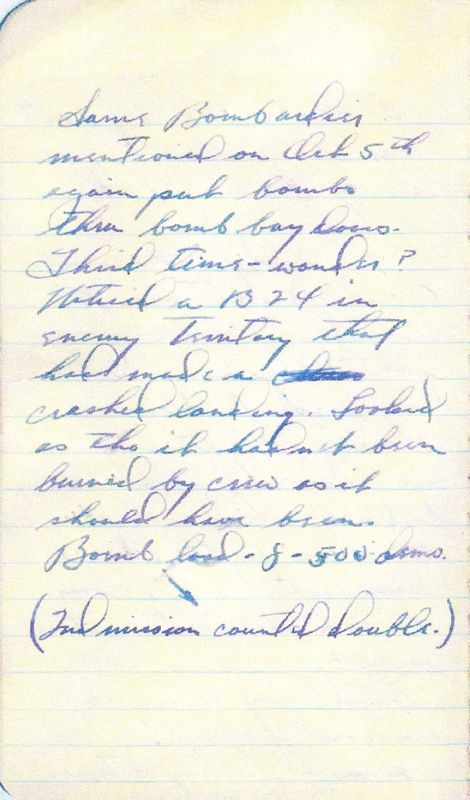 Same Bombardier
mentioned on Oct 5th
again put bombs
thru bomb bay doors.
Third time - wonder?
Noticed a B 24 in
enemy Territory that
had made a
crashed landing. Looked
as tho it hadn't been
burned by crew as it
should have been.
Bomb load - 8 - 500 demo.
(2nd mission counted double.)